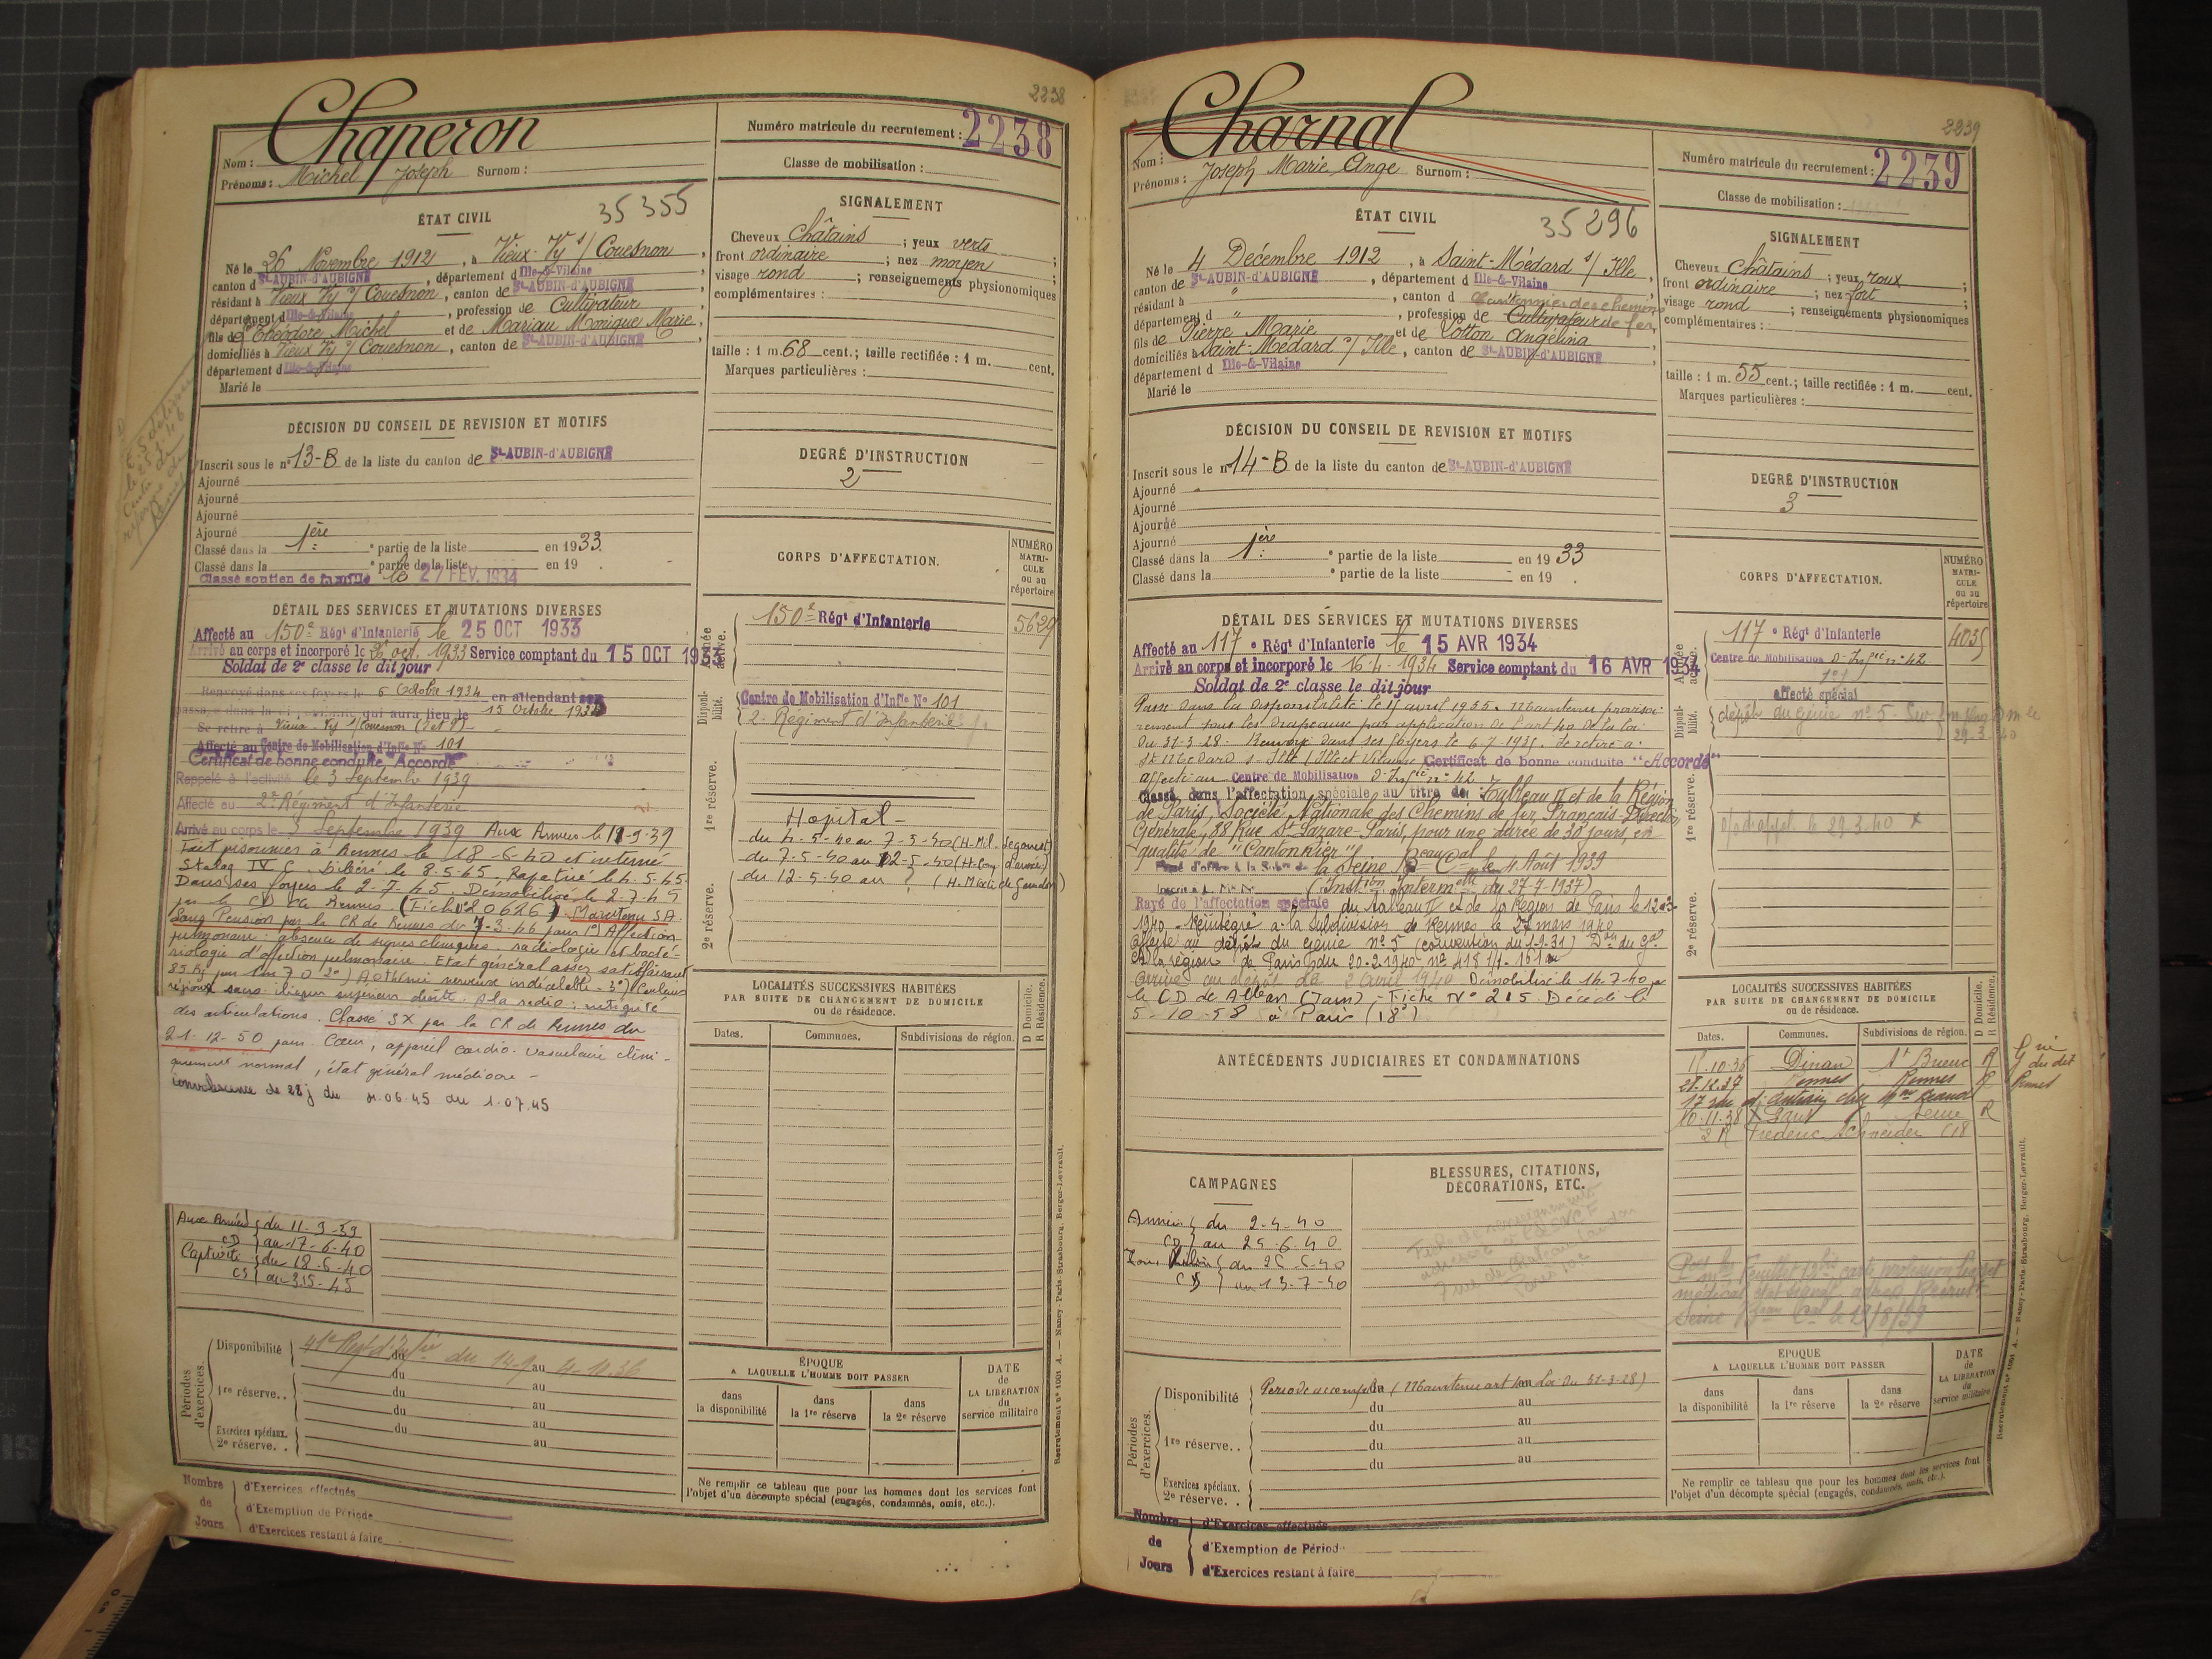 2238
Chaperon
Nom :
Prénoms : Michel Joseph Surnom :
Numéro matricule du recrutement : 2238
Classe de mobilisation :
ÉTAT CIVIL
35355
Né le 26 Novembre 1912, à Vieux-Vy s/ Couesnon,
canton d St-AUBIN-d'AUBIGNÉ, département d Ille-&-Vilaine
résidant à Vieux Vy s/ Couesnon, canton de St-AUBIN-d'AUBIGNÉ
département d Ille-&-Vilaine, profession de Cultivateur
fils de Théodore Michel et de Mariau Monique Marie,
domiciliés à Vieux Vy s/ Couesnon, canton de St-AUBIN-d'AUBIGNÉ
département d Ille-&-Vilaine
Marié le
SIGNALEMENT
Cheveux Châtains ; yeux verts ;
front ordinaire ; nez moyen ;
visage rond ; renseignements physionomiques
complémentaires :
taille : 1 m. 68 cent.; taille rectifiée : 1 m. cent.
Marques particulières :
DÉCISION DU CONSEIL DE REVISION ET MOTIFS
Inscrit sous le n° 13-B de la liste du canton de St-AUBIN-d'AUBIGNÉ
Ajourné
Ajourné
Ajourné
Ajourné
Classé dans la 1ère partie de la liste en 1933.
Classé dans la e partie de la liste en 19 .
Classé soutien de famille le 27 FEV. 1934
DEGRÉ D'INSTRUCTION
2
DÉTAIL DES SERVICES ET MUTATIONS DIVERSES
Affecté au 150e Régt d'Infanterie le 25 OCT 1933
Arrivé au corps et incorporé le 26 oct. 1933 Service comptant du 15 OCT 1933
Soldat de 2e classe le dit jour
Renvoyé dans ses foyers le 6 Octobre 1934 en attendant son
qui aura lieu le 15 Octobre 1934
Se retire à Vieux-Vy s/ Couesnon (I et V)
Affecté au Centre de Mobilisation d'Infie N° 101
Certificat de bonne conduite "Accordé"
Rappelé à l'activité le 3 Septembre 1939
Affecté au 2e Régiment d'Infanterie
Arrivé au corps le 3 Septembre 1939 Aux Armées le 11-9-39
Fait prisonnier à Rennes le 18-6-40 et interné
Stalag IV C. Libéré le 8.5.45. Rapatrié le 4.5.45.
Dans ses foyers le 2-7-45. Démobilisé le 2.7.45
par le CD de Rennes (Fiche N° 20626). Maintenu SA.
Sans Pension par la CR de Rennes du 7-3-46 pour 1°) Affection
pulmonaire : absence de signes cliniques, radiologie et bacté-
riologie d'affection pulmonaire. Etat général assez satisfaisant
85 Kg pour 1m70 2°) Asthénie nerveuse indécelable - 3°) Douleurs
région sacro-iliaque supérieur droite. A la radio : intégrité
des articulations. Classé SX par la CR de Rennes du
21-12-50 pour Cœur, appareil cardio-vasculaire clini-
quement normal, état général médiocre -
convalescence de 28 j du 4.06.45 au 1.07.45
CORPS D'AFFECTATION.
NUMÉRO MATRICULE ou au répertoire
Armée active.
150e Régt d'Infanterie 5629
Disponibilité.
Centre de Mobilisation d'Infie N° 101
2e Régiment d'Infanterie
1re réserve.
Hopital -
du 4-5-40 au 7-5-40 (H. Mil. Legouest)
du 7-5-40 au 12-5-40
du 12-5-40 au ?
2e réserve.
LOCALITÉS SUCCESSIVES HABITÉES
PAR SUITE DE CHANGEMENT DE DOMICILE
ou de résidence.
D Domicile.
R Résidence.
Dates. Communes. Subdivisions de région.
Aux Armées du 11-9-39
CD au 17-6-40
Captivité du 18-6-40
CS au 3.5-45
Périodes d'exercices.
Disponibilité 41e Régt d'Infie du 14-9 au 4-10.36
1re réserve..
Exercices spéciaux.
2e réserve..
ÉPOQUE
A LAQUELLE L'HOMME DOIT PASSER
dans la disponibilité
dans la 1re réserve
dans la 2e réserve
DATE de LA LIBÉRATION du service militaire
Ne remplir ce tableau que pour les hommes dont les services font
l'objet d'un décompte spécial (engagés, condamnés, omis, etc.).
Nombre de Jours
d'Exercices effectués
d'Exemption de Période
d'Exercices restant à faire
Recrutement n° 1001 A. — Nancy-Paris-Strasbourg, Berger-Levrault.
2239
Charnal
Nom :
Prénoms : Joseph Marie Ange Surnom :
Numéro matricule du recrutement : 2239
Classe de mobilisation :
ÉTAT CIVIL
35296
Né le 4 Décembre 1912, à Saint-Médard s/ Ille,
canton de St-AUBIN-d'AUBIGNÉ, département d Ille-&-Vilaine
résidant à " , canton d
Cantonnier des chemins
département d " , profession de Cultivateur de fer,
fils de Pierre Marie et de Cotton Angélina
domiciliés à Saint-Médard s/ Ille, canton de St-AUBIN-d'AUBIGNÉ
département d Ille-&-Vilaine
Marié le
SIGNALEMENT
Cheveux Châtains ; yeux roux ;
front ordinaire ; nez fort ;
visage rond ; renseignements physionomiques
complémentaires :
taille : 1 m. 55 cent.; taille rectifiée : 1 m. cent.
Marques particulières :
DÉCISION DU CONSEIL DE REVISION ET MOTIFS
Inscrit sous le n° 14-B de la liste du canton de St-AUBIN-d'AUBIGNÉ
Ajourné
Ajourné
Ajourné
Ajourné
Classé dans la 1ère partie de la liste en 1933
Classé dans la e partie de la liste en 19 .
DEGRÉ D'INSTRUCTION
3
DÉTAIL DES SERVICES ET MUTATIONS DIVERSES
Affecté au 117e Régt d'Infanterie le 15 AVR 1934
Arrivé au corps et incorporé le 16-4-1934 Service comptant du 16 AVR 1934
Soldat de 2e classe le dit jour
Passé dans la disponibilité le 15 avril 1935. Maintenu provisoi-
rement sous les drapeaux par application de l'art 40 de la loi
du 31-3-28. Renvoyé dans ses foyers le 6 7 1935. Se retire à
St Médard s. Ille (Ille et Vilaine) Certificat de bonne conduite "Accordé"
affecté au Centre de Mobilisation d'Infie n° 42
Classé dans l'affectation spéciale au titre du Tableau II et de la Région
de Paris, Société Nationale des Chemins de fer Français-Direction
Générale, 88, Rue St Lazare-Paris, pour une durée de 30 jours, en
qualité de "Cantonnier"
la Seine Beau Cal le 4 Août 1939
(Instion Intermelle du 27-7-1937)
Rayé de l'affectation spéciale du tableau II et de la Région de Paris le 12-3-
1940. Réintégré à la subdivision de Rennes le 27 mars 1940
affecté au dépôt du génie n° 5 (convention du 1-9-31) Don du Gal
Ct la région de Paris du 20-2-1940 n° 4181/1-161
Arrivé au dépôt le 2 Avril 1940. Démobilisé le 14-7-40 par
le CD de Alban (Tarn). Fiche N° 215. Décédé le
5-10-58 à Paris (18e)
CORPS D'AFFECTATION.
NUMÉRO MATRICULE ou au répertoire
Armée active.
117e Régt d'Infanterie 4035
Centre de Mobilisation d'Infie n° 42
affecté spécial
Disponibilité.
dépôt du génie n° 5
29-3-40
1re réserve.
2e réserve.
ANTÉCÉDENTS JUDICIAIRES ET CONDAMNATIONS
LOCALITÉS SUCCESSIVES HABITÉES
PAR SUITE DE CHANGEMENT DE DOMICILE
ou de résidence.
D Domicile.
R Résidence.
Dates. Communes. Subdivisions de région.
10.36 Dinan St Brieuc R
28.12.37 Rennes Rennes R
10-11-38 Paris Seine R
Frédéric Schneider (18
CAMPAGNES
Armées du 2-4-40
CD au 25-6-40
du 26-6-40
CD au 13-7-40
BLESSURES, CITATIONS,
DÉCORATIONS, ETC.
Périodes d'exercices.
Disponibilité Période accomplie (Maintenu art 40 Loi du 31-3-28)
1re réserve..
Exercices spéciaux.
2e réserve..
ÉPOQUE
A LAQUELLE L'HOMME DOIT PASSER
dans la disponibilité
dans la 1re réserve
dans la 2e réserve
DATE de LA LIBÉRATION du service militaire
Ne remplir ce tableau que pour les hommes dont les services font
l'objet d'un décompte spécial (engagés, condamnés, omis, etc.).
Nombre de Jours
d'Exercices effectués
d'Exemption de Période
d'Exercices restant à faire
Recrutement n° 1001 A. — Nancy-Paris-Strasbourg, Berger-Levrault.